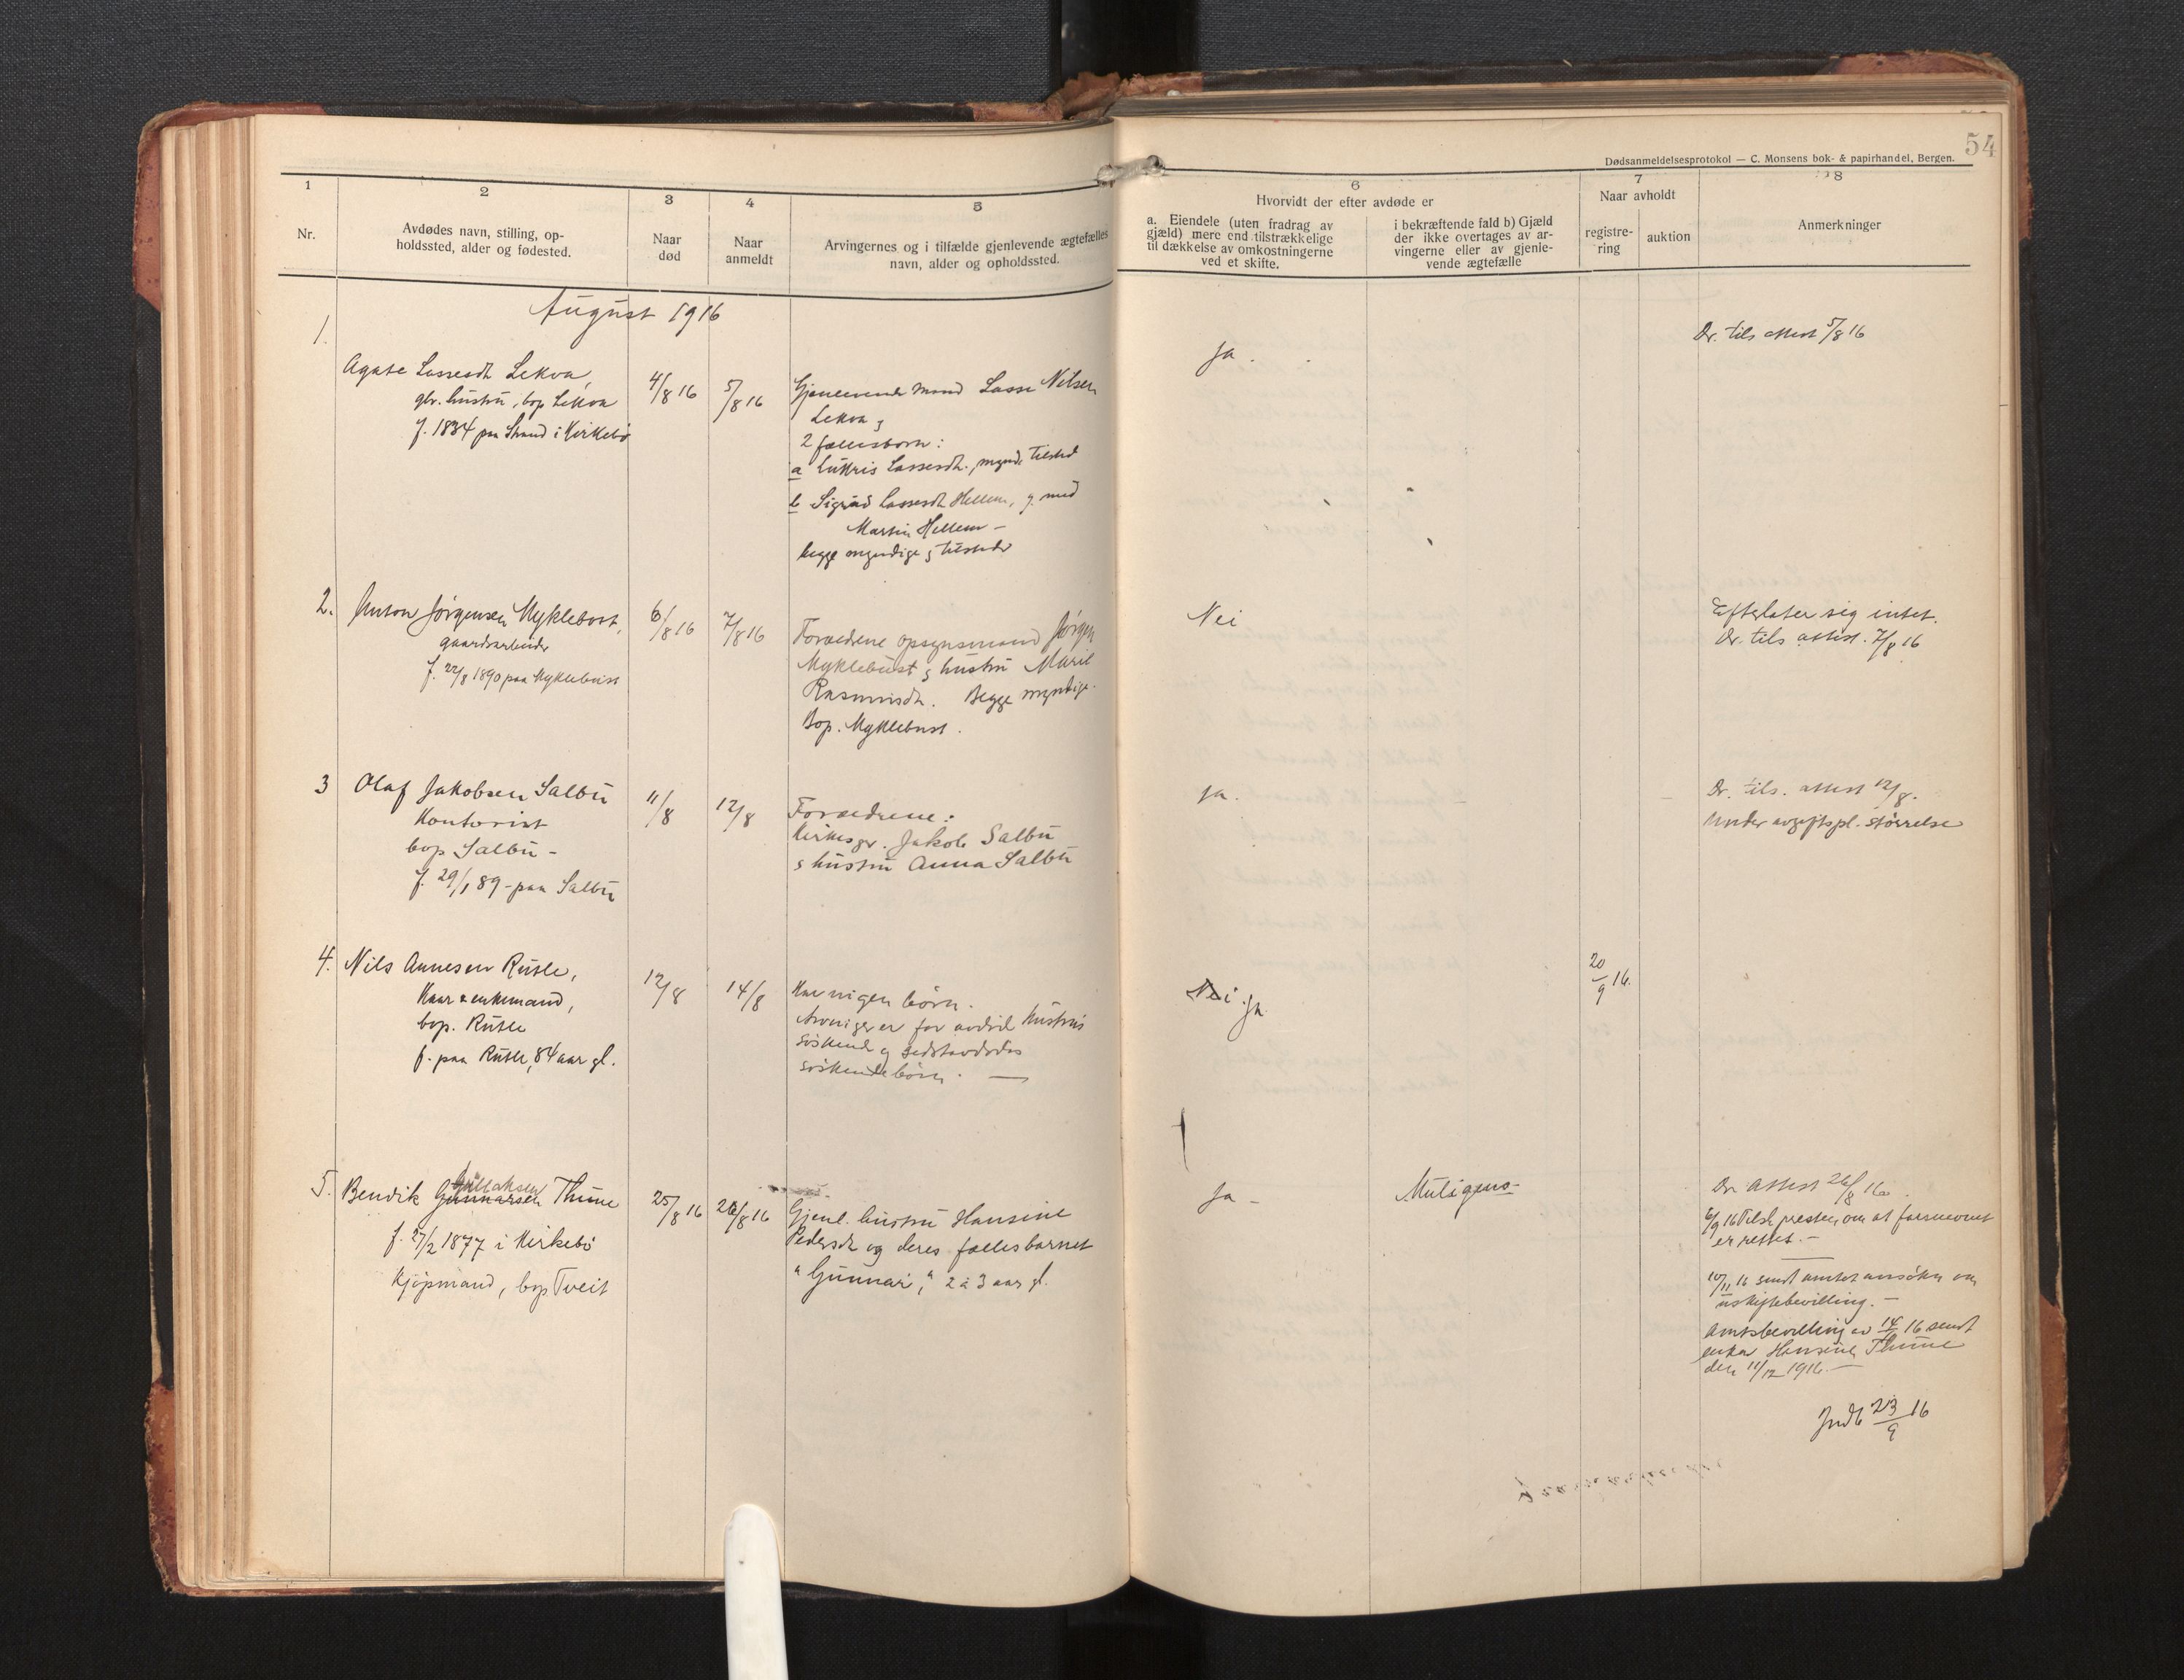 54
Dødsanmeldelsesprotokol — C. Monsens bok- & papirhandel, Bergen.
1
Nr.
2
Avdødes navn, stilling, op-
holdssted, alder og fødested.
3
Naar
død
4
Naar
anmeldt
5
Arvingernes og i tilfælde gjenlevende ægtefælles
navn, alder og opholdssted.
6
Hvorvidt der efter avdøde er
a. Eiendele (uten fradrag av
gjæld) mere end tilstrækkelige
til dækkelse av omkostningerne
ved et skifte.
i bekræftende fald b) Gjæld
der ikke overtages av ar-
vingerne eller av gjenle-
vende ægtefælle
7
Naar avholdt
registre-
ring
auktion
8
Anmerkninger
August 1916
1.
Agate Lassesdt Lekva,
gbr. hustru, bop Lekva
f. 1834 paa Strand i Kirkebö
4/8 16
5/8 16
Gjenlevende mand Lasse Nilsen
Lekva &
2 fællesbørn:
a Lukris Lassesdt., mynd. tilsted
b Sigrid Lassesdt Hellem, g. med
Martin Hellem –
begge myndige & tilstede
Ja.
Dr. tils attest 5/8 16
2.
Anton Jörgensen Myklebost,
gaardsarbeider
f. 22/8 1890 paa Myklebust
6/8 16
7/8 16
Forældrene opsynsmand Jörgen
Myklebust & hustru Maril
Rasmusdt. Begge myndige.
Bop. Myklebust.
Nei
Efterlater sig intet.
Dr. tils. attest. 7/8 16
3
Olaf Jakobsen Salbu
Kontorist
bop Salbu –
f. 29/1 89 – paa Salbu
11/8
12/8
Forældrene:
Kirkesgr. Jakob Salbu
& hustru Anna Salbu
Ja.
Dr. tils. attest 12/8.
Under avgiftspl. størrelse
4.
Nils Annesen Rutle,
Kaar & enkemand,
bop. Rutle
f. paa Rutle, 84 aar gl.
12/8
14/8
Har ingen børn.
Arvinger er før avdød hustrus
söskende og sidstavdødes
söskendebörn. —
Nei. Ja.
20/9 16.
5.
Bendik Gunnarsen Thune
Gullaksen
f. 27/2 1877 i Kirkebö
Kjöpmand, bop Tveit
25/8 16
26/8 16
Gjenl. hustru Hansine
Pedersdt og deres fællesbarnet
"Gunnar," 2 à 3 aar gl.
Ja –
Muligens –
Dr. Attest 26/8 16.
6/9 16 Tilsk. presten om at farsnavnet
er rettet. –
10/11 16 sendt amtet ansökn om
uskiftebevilling. –
Amtsbevilling av 14/11 16 sendt
enken Hansine Thune
den 11/12 1916. —
Indb 23/9 16